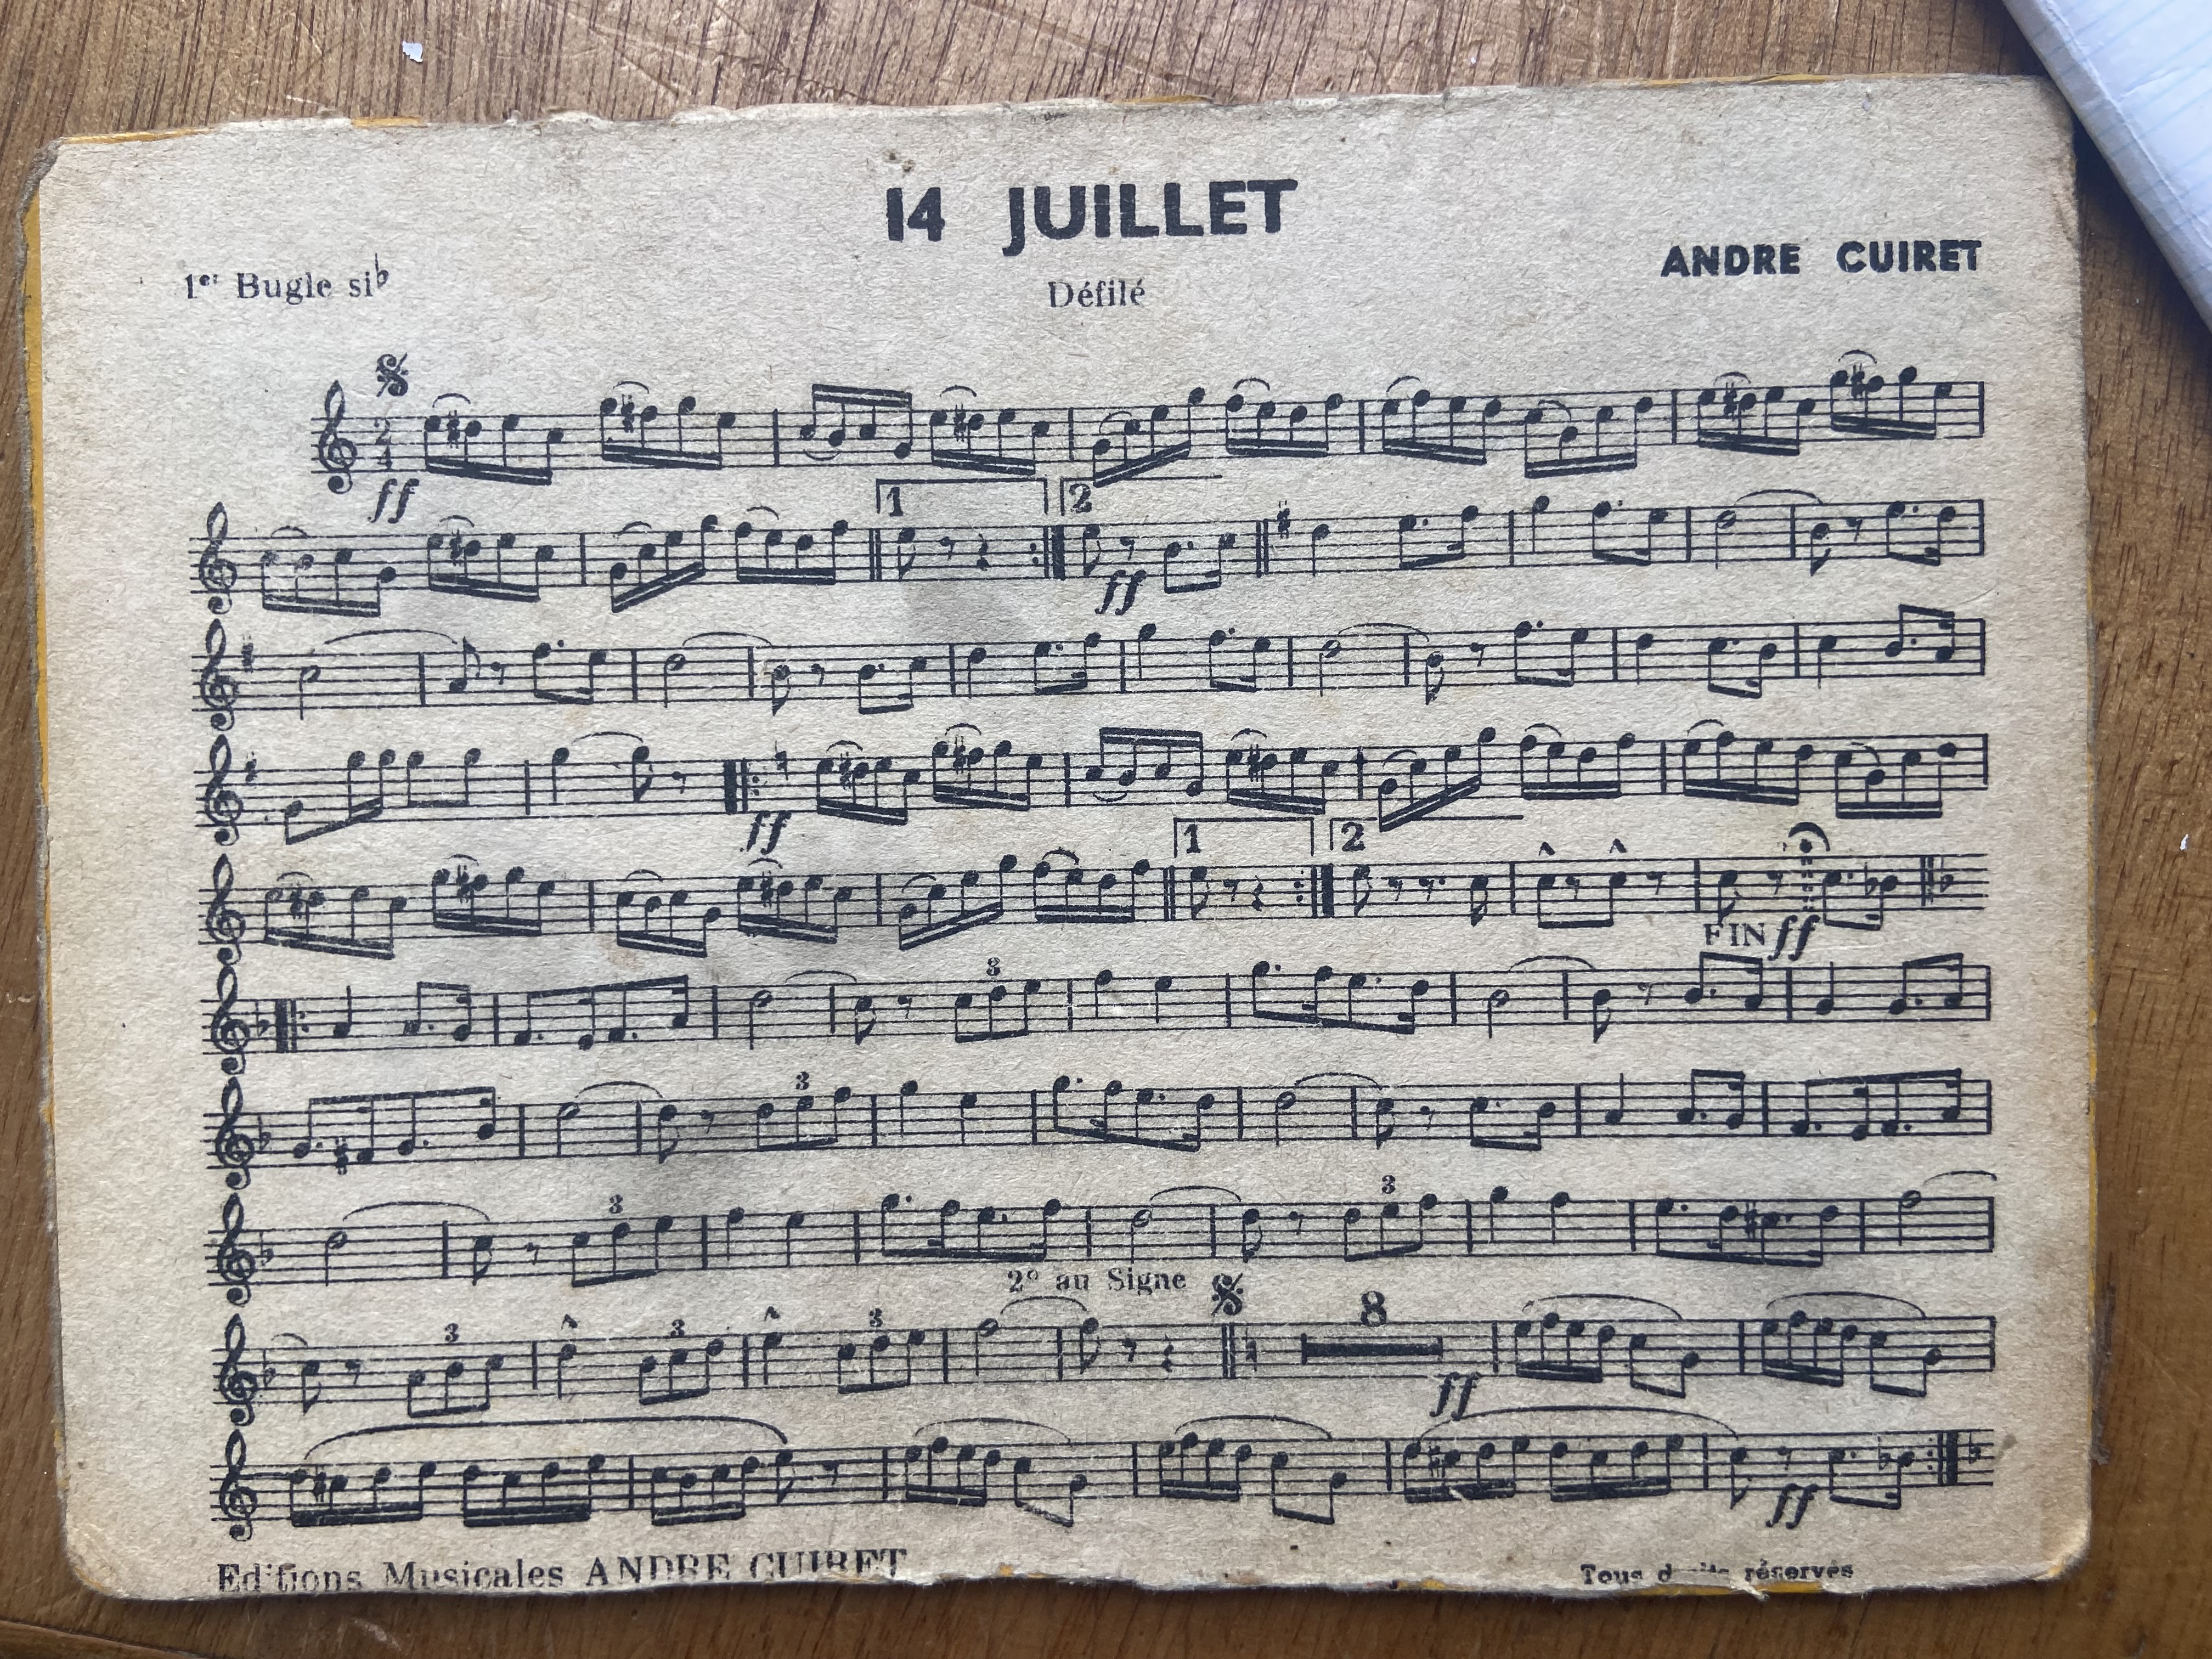 14 JUILLET
1er Bugle si♭
Défilé
ANDRE CUIRET
2
4
ff
1
2
ff
ff
1
2
FIN ff
3
3
3
3
2º au Signe
3
3
3
8
ff
ff
Editions Musicales ANDRE CUIRET
Tous droits réservés